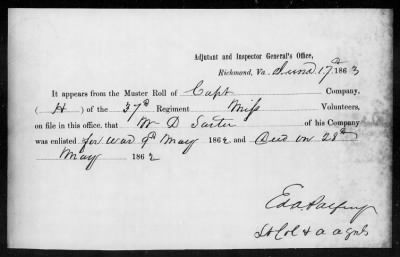 Adjutant and Inspector General's Office,
Richmond, Va. June 17th 1863
It appears from the Muster Roll of Capt Company,
(H) of the 37th Regiment Miss Volunteers,
on file in this office, that W D Sarter of his Company
was enlisted for War 9th May 1862 and Died on 28th
May 1862
Lt Col & a a genl